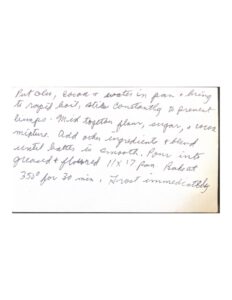 Put oleo, cocoa + water in pan + bring
to rapid boil, stir constantly to prevent
lumps. Mix together flour, sugar, + cocoa
mixture. Add other ingredients + blend
until batter is smooth. Pour into
greased + floured 11 x 17 pan. Bake at
350° for 30 min. Frost immediately